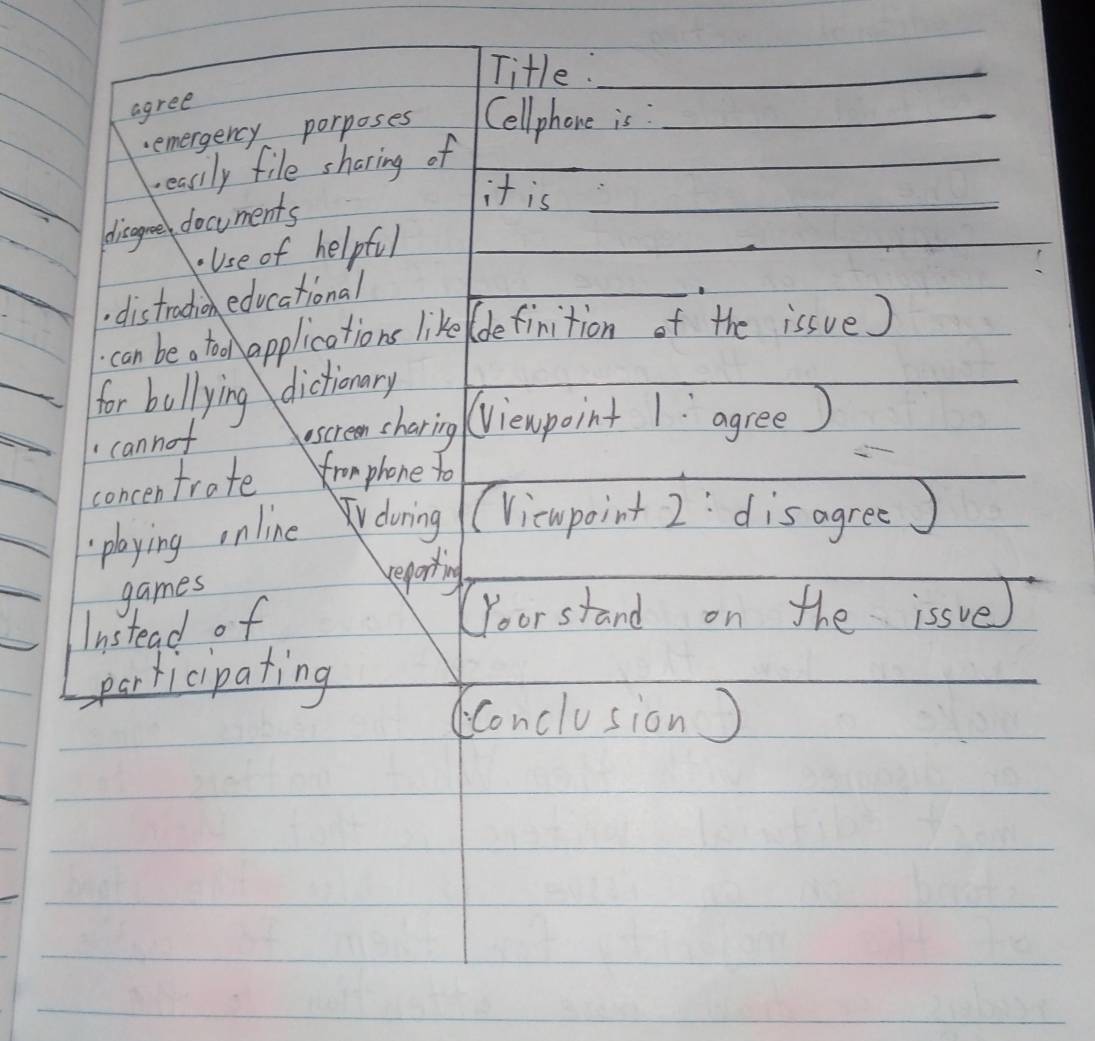 agree
.emergency porposes
.easily file sharing of
documents
.Use of helpful
educational
applications like
dictionary
.screen sharing
from phone to
TV during
reporting
disagree
.distraction
.can be a tool
for bullying
.cannot
concentrate
.playing online
games
Instead of
participating
Title:
Cellphone is:
it is
(definition of the issue)
(Viewpoint 1: agree)
(Viewpoint 2: disagree)
(Yoor stand on the issue)
(Conclusion)